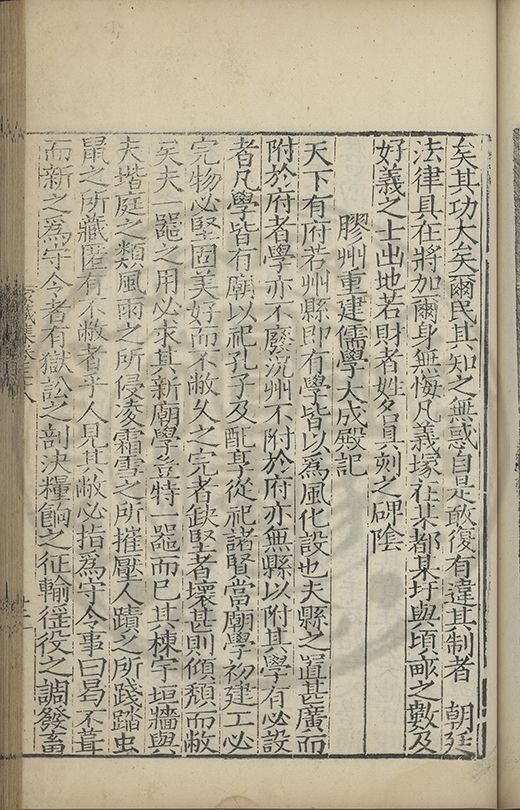 矣其功大矣爾民其知之無惑自是敢復有違其制者　朝廷
法律具在將加爾身無悔凡義塚在某都某圩與頃畝之數及
好義之士出地若財者姓名具刻之碑陰
膠州重建儒學大成殿記
天下有府若州縣即有學皆以為風化設也夫縣之置甚廣而
附於府者學亦不廢況州不附於府亦無縣以附其學有必設
者凡學皆有廟以祀孔子及配享從祀諸賢當廟學初建工必
完物必堅固美好而不敝久之完者缺堅者壞甚則傾頹而敝
矣夫一器之用必求其新廟學豈特一器而已其棟宇垣牆與
夫堦庭之類風雨之所侵凌霜雪之所摧壓人蹟之所踐蹋虫
鼠之所藏匿有不敝者乎人見其敝必指為守令事曰曷不葺
而新之為守令者有獄訟之剖決糧餉之征輸徭役之調發畜
家藏集卷三十八